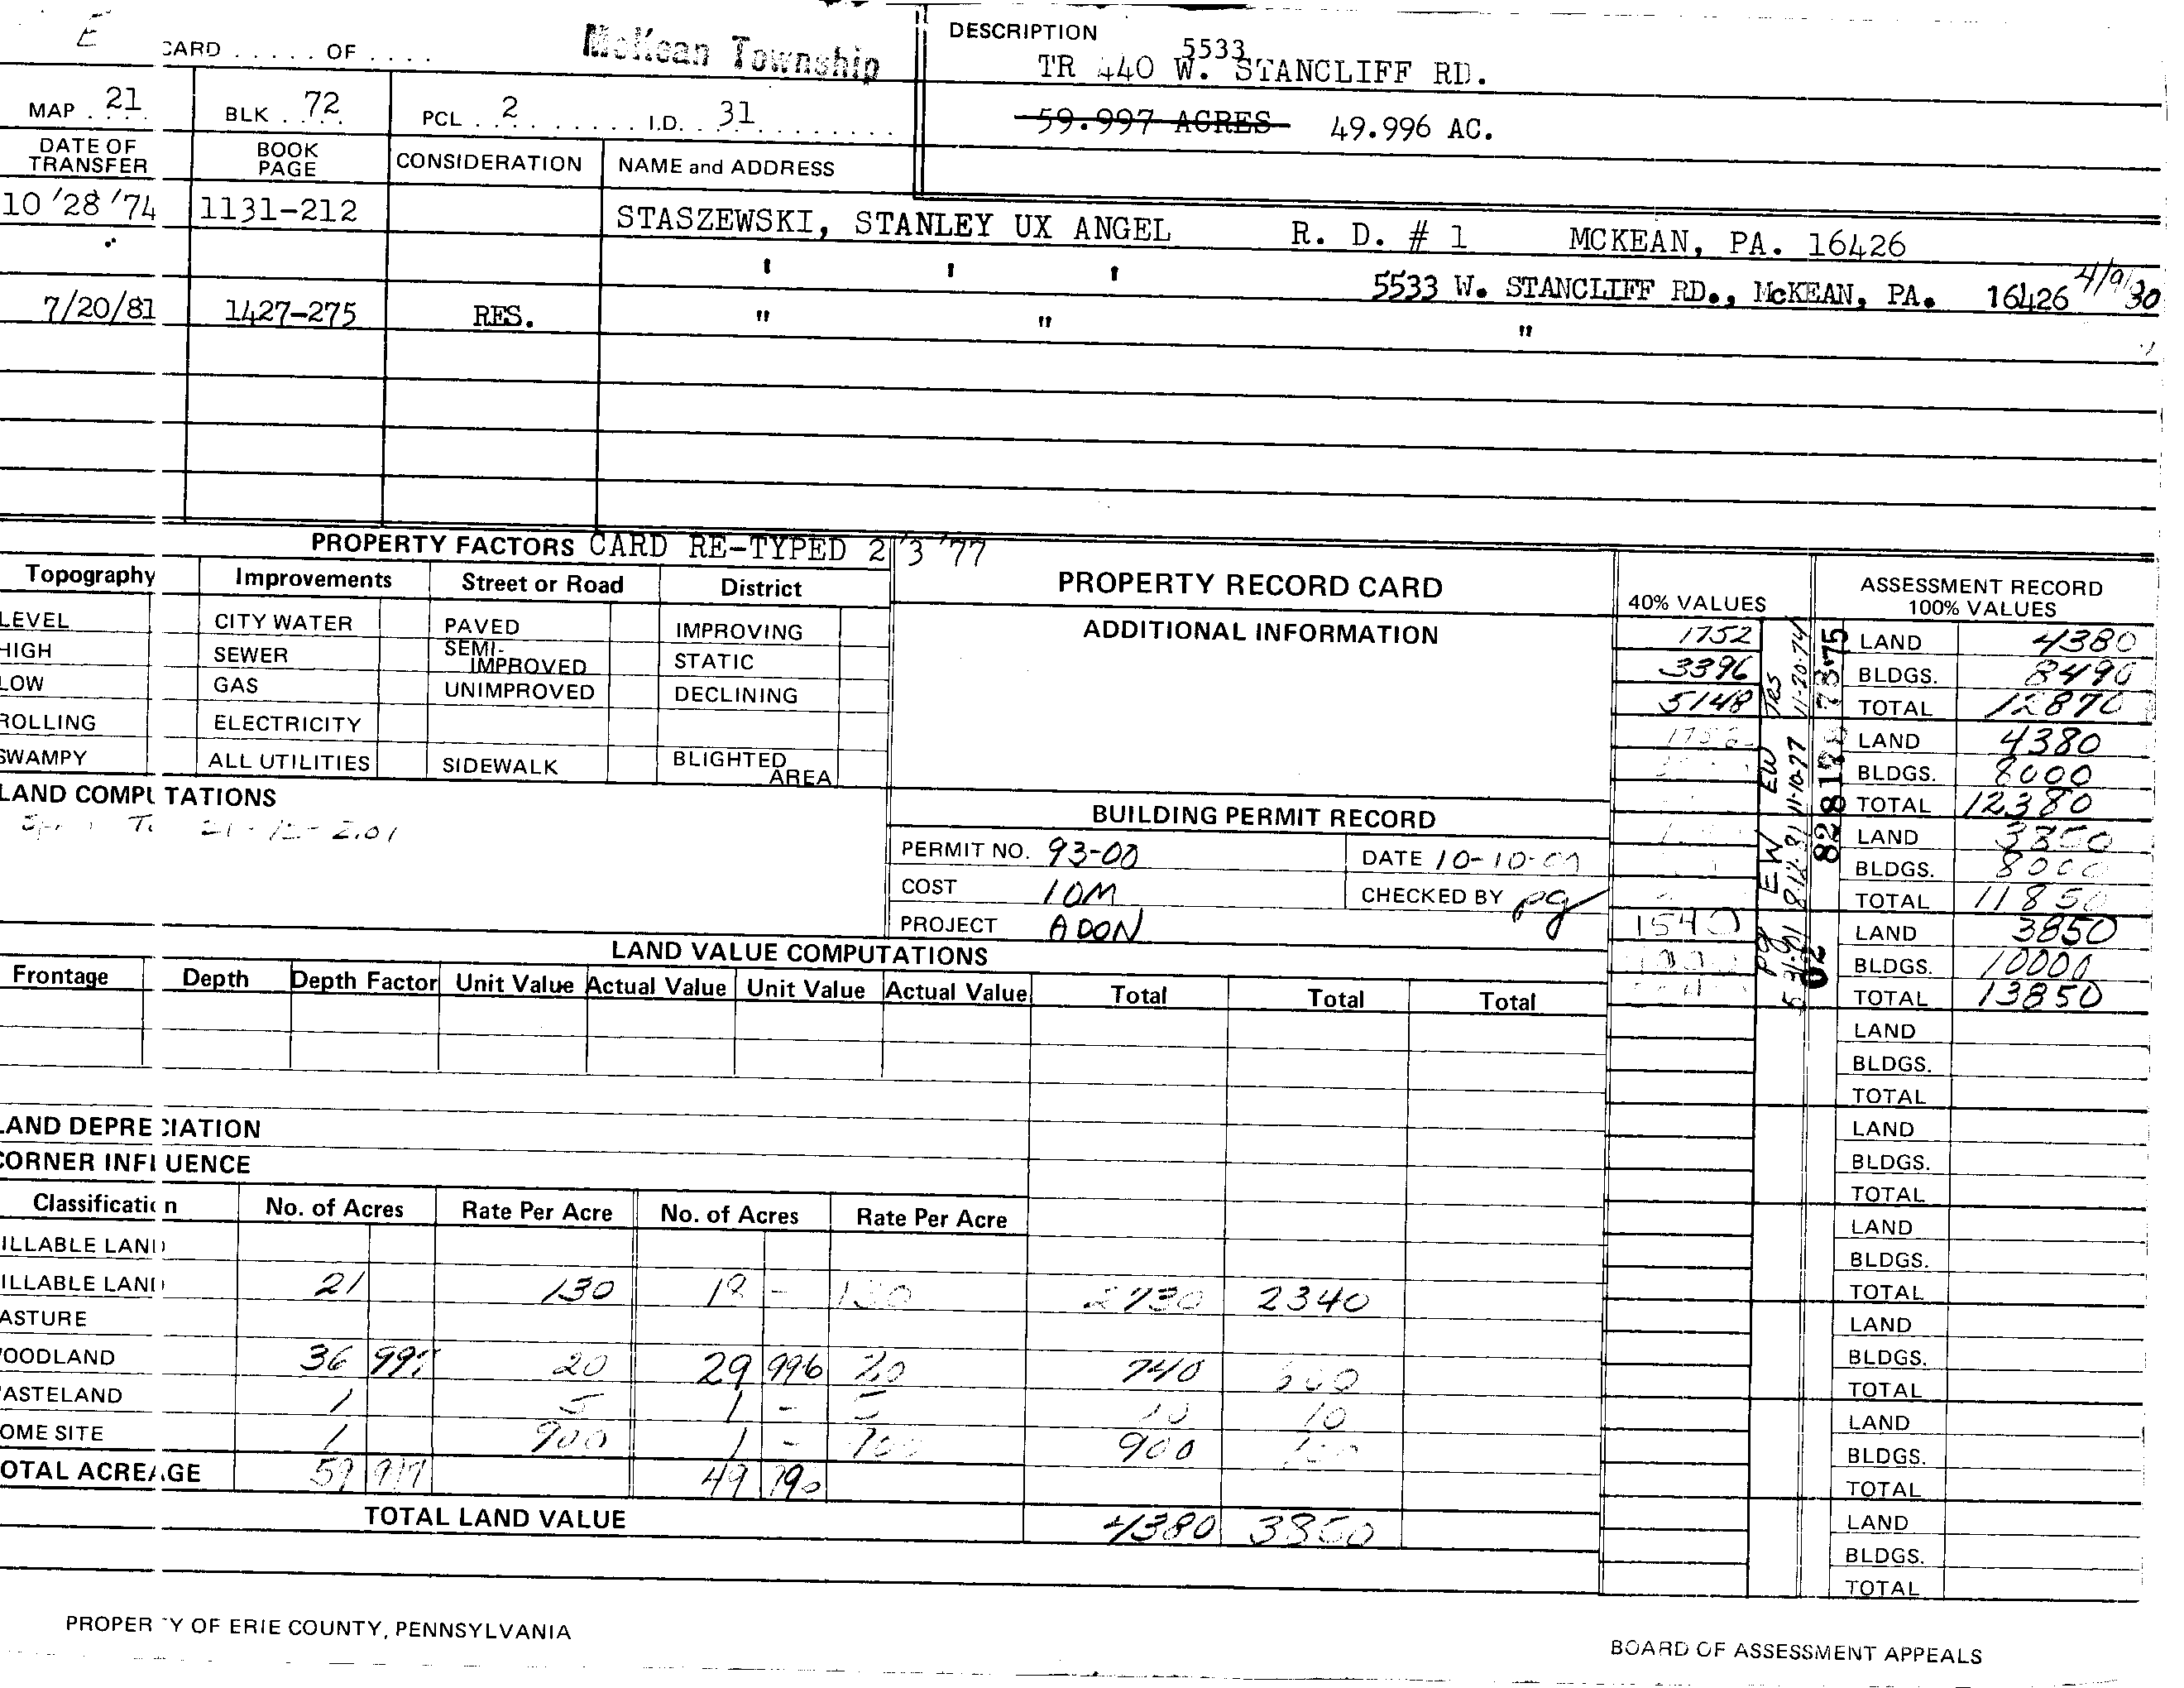 E
CARD ..... OF ....
McKean Township
DESCRIPTION
5533
TR 440 W. STANCLIFF RD.
MAP 21 BLK 72 PCL 2 I.D. 31
59.997 ACRES 49.996 AC.
DATE OF TRANSFER BOOK PAGE CONSIDERATION NAME and ADDRESS
10 '28 '74 1131-212 STASZEWSKI, STANLEY UX ANGEL R. D. # 1 MCKEAN, PA. 16426
' ' ' 5533 W. STANCLIFF RD., McKEAN, PA. 16426
7/20/81 1427-275 RES. " " "
PROPERTY FACTORS CARD RE-TYPED 2 '3 '77
Topography Improvements Street or Road District
LEVEL CITY WATER PAVED IMPROVING
HIGH SEWER SEMI-IMPROVED STATIC
LOW GAS UNIMPROVED DECLINING
ROLLING ELECTRICITY
SWAMPY ALL UTILITIES SIDEWALK BLIGHTED AREA
PROPERTY RECORD CARD
ADDITIONAL INFORMATION
LAND COMPUTATIONS
BUILDING PERMIT RECORD
PERMIT NO. 93-00 DATE 10-10-00
COST 10M CHECKED BY pg
PROJECT ADON
40% VALUES
1752
3396
5148
1540
JRS 11-20-74
EW 11-10-77
EW 8-12-81
pg 5-31-01
75
78
81
82
02
ASSESSMENT RECORD
100% VALUES
LAND 4380
BLDGS. 8490
TOTAL 12870
LAND 4380
BLDGS. 8000
TOTAL 12380
LAND 3850
BLDGS. 8000
TOTAL 11850
LAND 3850
BLDGS. 10000
TOTAL 13850
LAND
BLDGS.
TOTAL
LAND
BLDGS.
TOTAL
LAND
BLDGS.
TOTAL
LAND
BLDGS.
TOTAL
LAND
BLDGS.
TOTAL
LAND
BLDGS.
TOTAL
LAND VALUE COMPUTATIONS
Frontage Depth Depth Factor Unit Value Actual Value Unit Value Actual Value Total Total Total
LAND DEPRECIATION
CORNER INFLUENCE
Classification No. of Acres Rate Per Acre No. of Acres Rate Per Acre
ILLABLE LAND
ILLABLE LAND 21 130 18 - 130 2730 2340
ASTURE
OODLAND 36 997 20 29 996 20 740 600
ASTELAND 1 5 1 - 5 10 10
OME SITE 1 900 1 - 900 900
OTAL ACREAGE 59 997 49 996
TOTAL LAND VALUE 4380 3850
PROPERTY OF ERIE COUNTY, PENNSYLVANIA
BOARD OF ASSESSMENT APPEALS